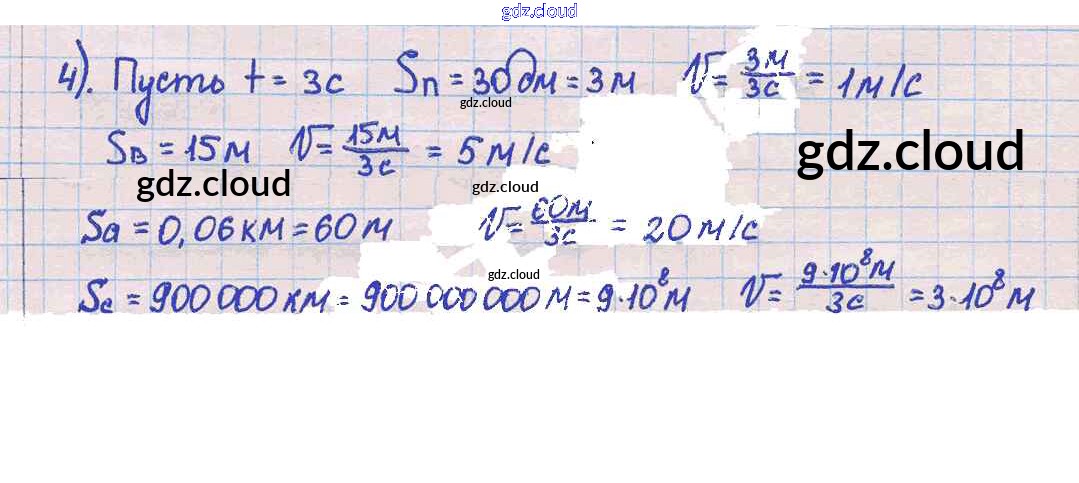 gdz.cloud
4). Пусть t = 3с Sп = 30дм = 3м V = 3м/3с = 1м/с
gdz.cloud
Sв = 15м V = 15м/3с = 5м/с
gdz.cloud
gdz.cloud gdz.cloud
Sа = 0,06км = 60м V = 60м/3с = 20м/с
gdz.cloud
Sс = 900 000км = 900 000 000м = 9·10⁸м V = 9·10⁸м/3с = 3·10⁸м